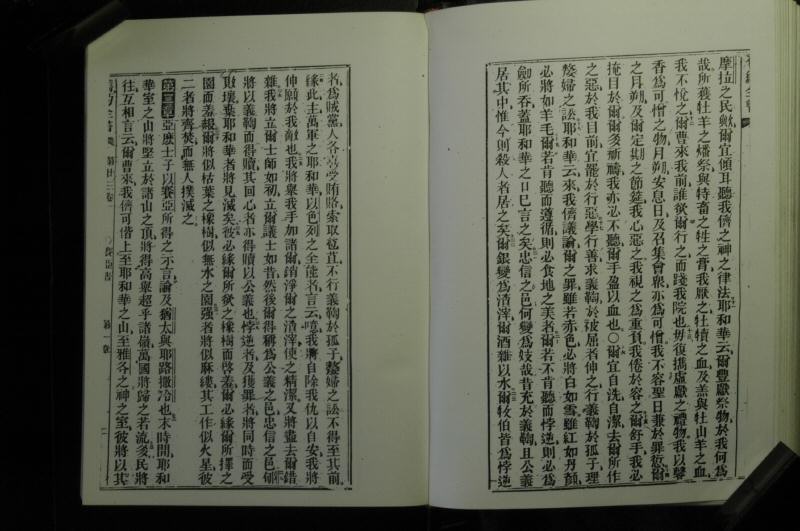 摩拉之民歟爾宜傾耳聽我儕之神之律法耶和華云爾豐獻祭物於我何為
哉所獲牡羊之燔祭與特畜之牲之膏我厭之牡犢之血及羔與牡山羊之血
我不悅之爾曹來我前誰欲爾行之而踐我院也毋復攜虛獻之禮物我以馨
香為可憎之物月朔安息日及召集會眾亦為可憎我不容聖日兼於罪愆爾
之月朔及爾定期之節筵我心惡之我視之為重負我倦於容之爾舒手我必
掩目於爾爾多祈禱我亦必不聽爾手盈以血也○爾宜自洗自潔去爾所作
之惡於我目前宜罷於行惡學行善求義鞫於被屈者伸之行義鞫於孤子理
嫠婦之訟耶和華云來我儕議論爾之罪雖若赤色必將白如雪雖紅如丹顏
必將如羊毛爾若肯聽而遵循則必食地之美者爾若不肯聽而悖逆則必為
劍所吞蓋耶和華之口已言之矣忠信之邑何變為妓哉昔充於義鞫且公義
居其中惟今則殺人者居之矣爾銀變為渣滓爾酒雜以水爾牧伯皆為悖逆
者為賊黨人各喜受賄賂索取苞苴不行義鞫於孤子嫠婦之訟不得至其前
緣此主萬軍之耶和華以色列之全能者言云噫我將自除我仇以自安我將
伸願於我敵也我將舉我手加諸爾銷淨爾之渣滓使之精潔又將盡去爾錯
雜我將立爾士師如初立爾議士如昔然後爾得稱為公義之邑忠信之邑郇
將以義鞫而得贖其回心者亦得贖以公義也悖逆者及獲罪者將同時而受
敗壞葉耶和華者將見滅矣彼必緣爾所欲之橡樹而啓羞爾必緣爾所擇之
園而羞緞爾將似枯葉之橡樹似無水之園强者將似麻縷其工作似火星彼
二者將齊焚而無人撲滅之
第二章亞麽士子以賽亞所得之示言論及猶太與耶路撒冷也末時間耶和
華室之山將堅立於諸山之頂將得高舉超乎諸嶺萬國將歸之若流多民將
往互相言云爾曹來我儕可偕上至耶和華之山至雅各之神之室彼將以其